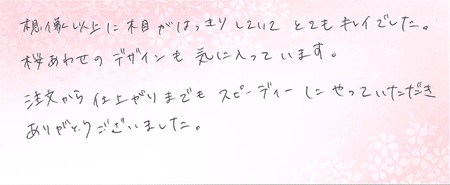 想像以上に木目がはっきりしていて とてもキレイでした。
桜あわせのデザインも 気に入っています。
注文から仕上がりまでも スピーディーにやっていただき
ありがとうございました。